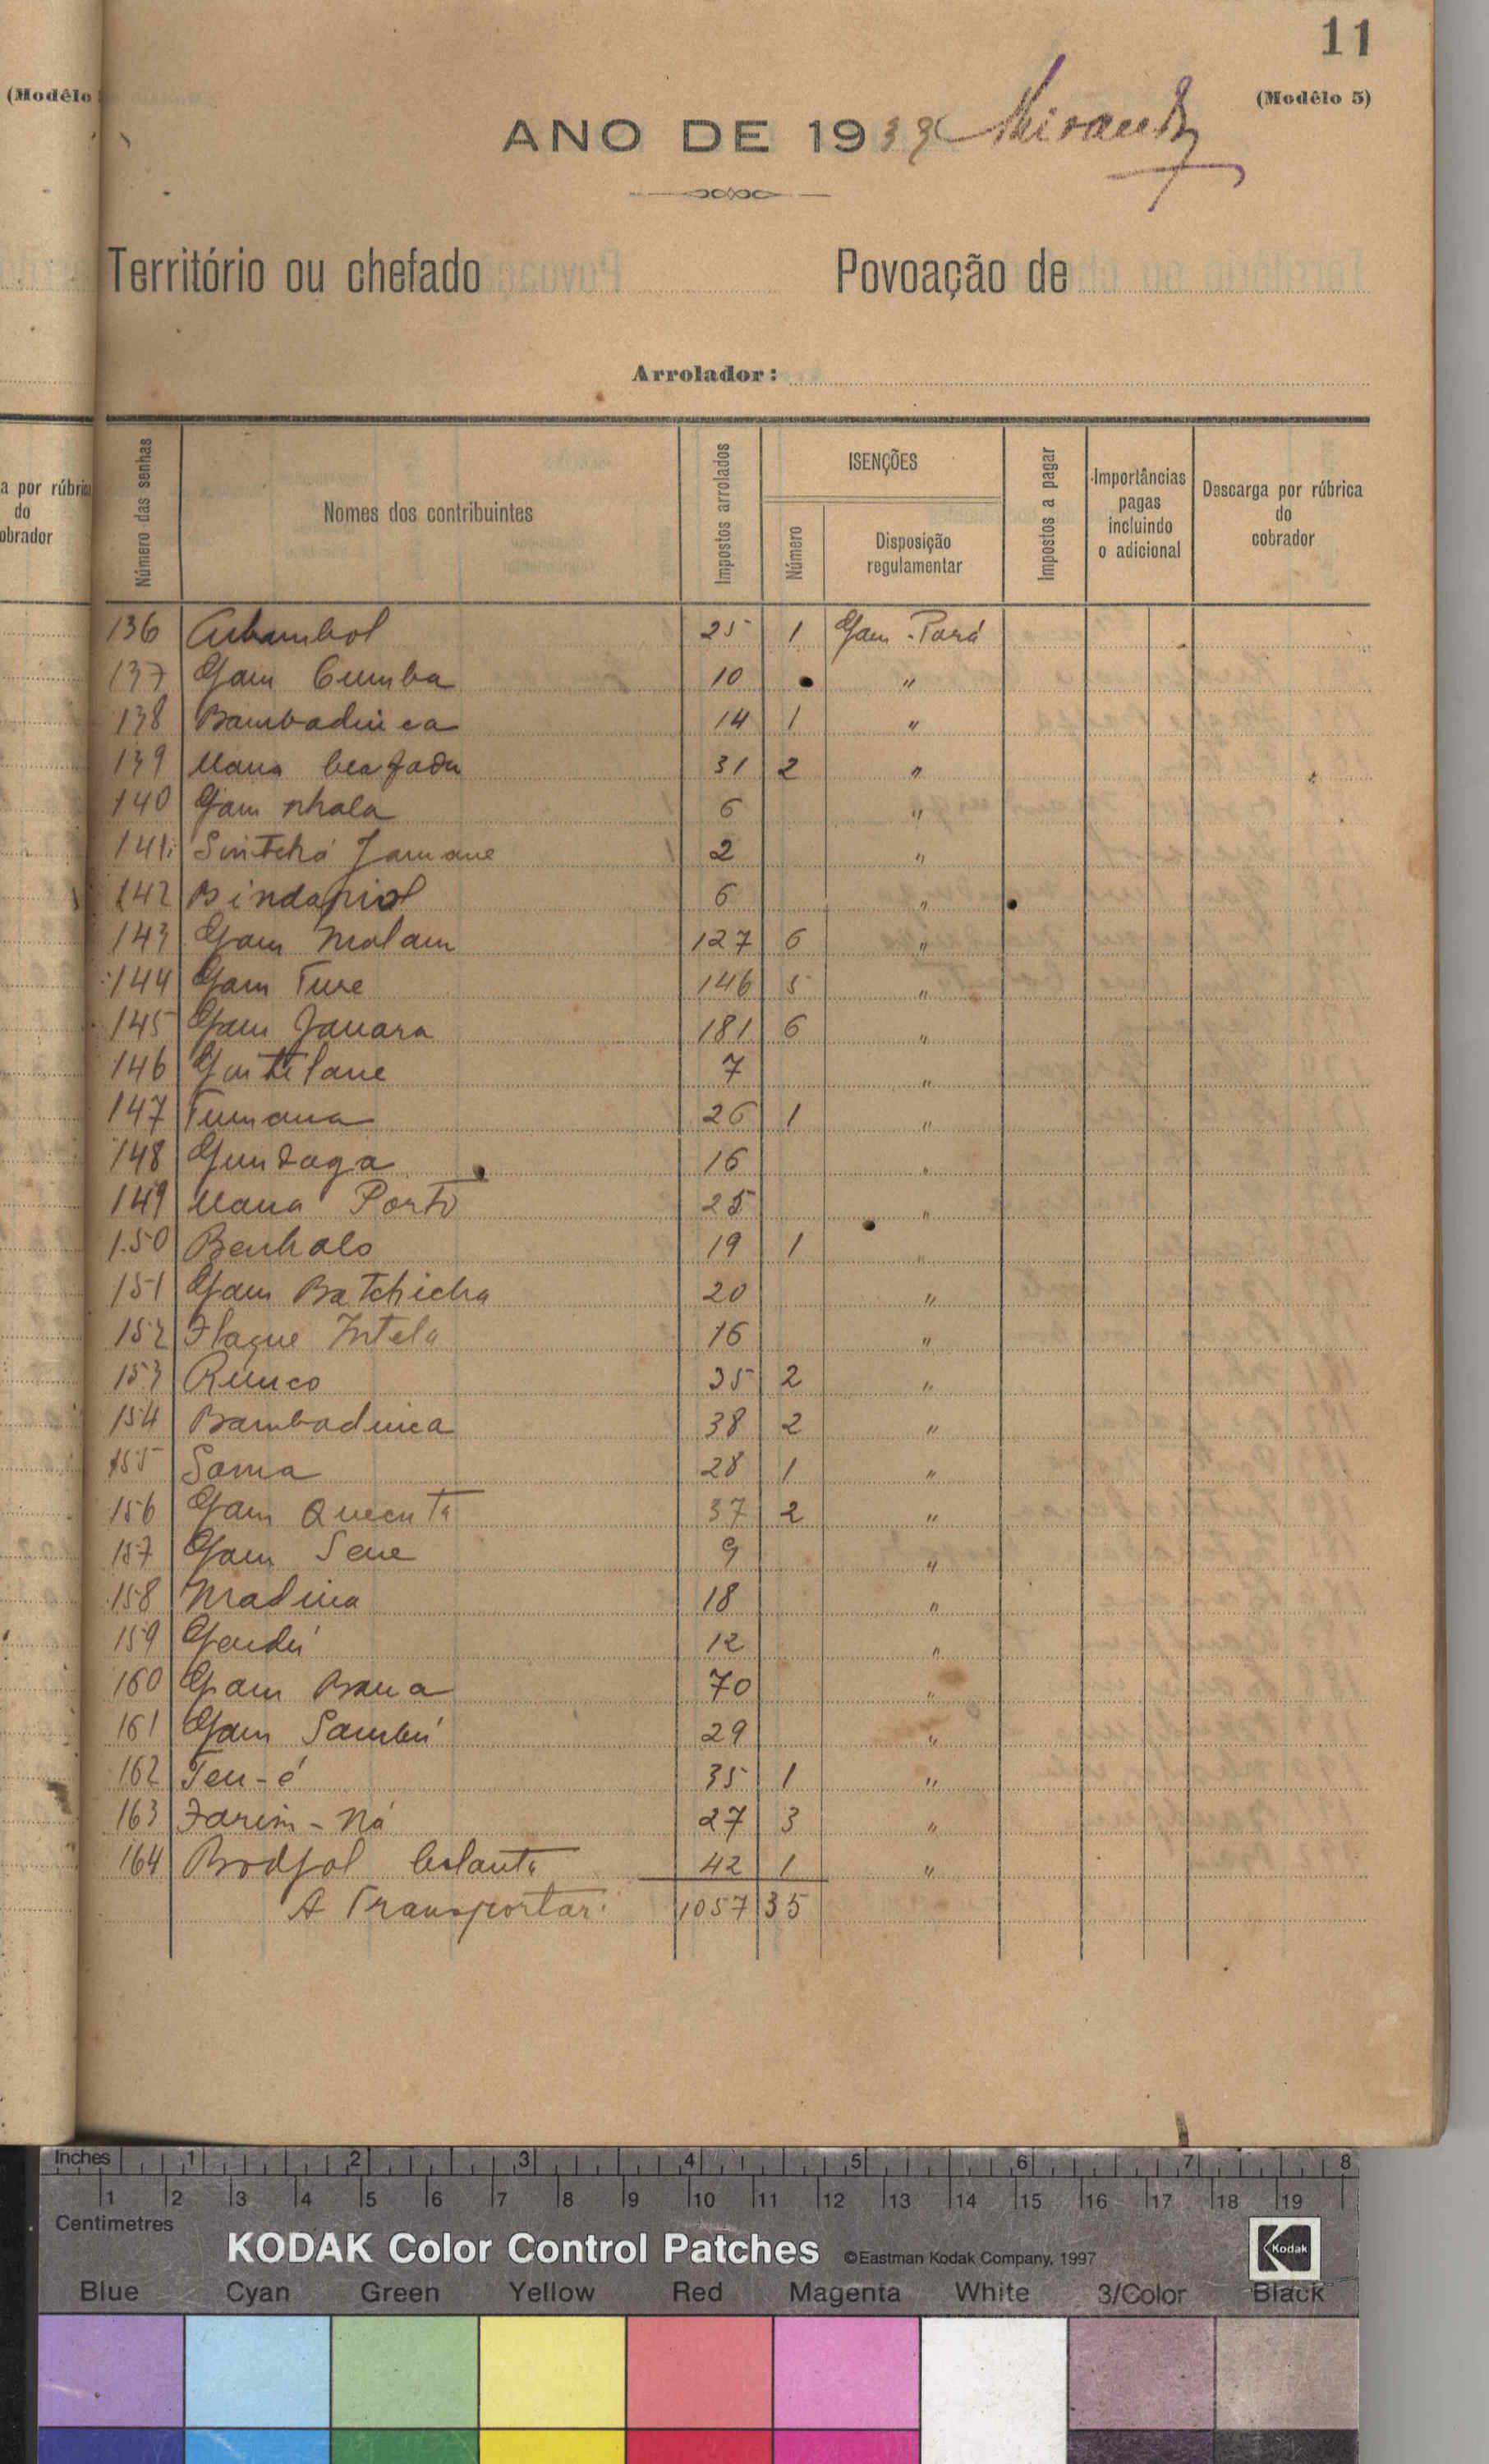 11
(Modêlo
(Modêlo 5)
ANO DE 1939 Miranda
Território ou chefado Povoação de
Arrolador:
a por rúbrica
do
obrador
Número das senhas
Nomes dos contribuintes
Impostos arrolados
ISENÇÕES
Número
Disposição
regulamentar
Impostos a pagar
Importâncias
pagas
incluindo
o adicional
Descarga por rúbrica
do
cobrador
136 25 1 Gam-Pará
137 Gam Cumba 10 "
138 Bambadinca 14 1 "
139 Mana beafada 31 2 "
140 Gam nhala 6 "
141 Sintchó Jamane 2 "
142 6 "
143 Gam Malam 127 6 "
144 Gam Ture 146 5 "
145 Gam Janara 181 6 "
146 7 "
147 Tumana 26 1 "
148 Gundaga 16 "
149 Mana Porto 25 "
150 Benhalo 19 1 "
151 Gam Batchicha 20 "
152 Flaque Intela 16 "
153 Runco 35 2 "
154 Bambadinca 38 2 "
155 Sama 28 1 "
156 Gam Quecuta 37 2 "
157 Gam Sene 9 "
158 Madina 18 "
159 Gendú 12 "
160 Gam Bana 70 "
161 Gam Sambú 29 "
162 Ten-é 35 1 "
163 Farim-Ná 27 3 "
164 42 1 "
A Transportar: 1057 35
Inches 1 2 3 4 5 6 7 8
1 2 3 4 5 6 7 8 9 10 11 12 13 14 15 16 17 18 19
Centimetres
KODAK Color Control Patches ©Eastman Kodak Company, 1997 Kodak
Blue Cyan Green Yellow Red Magenta White 3/Color Black